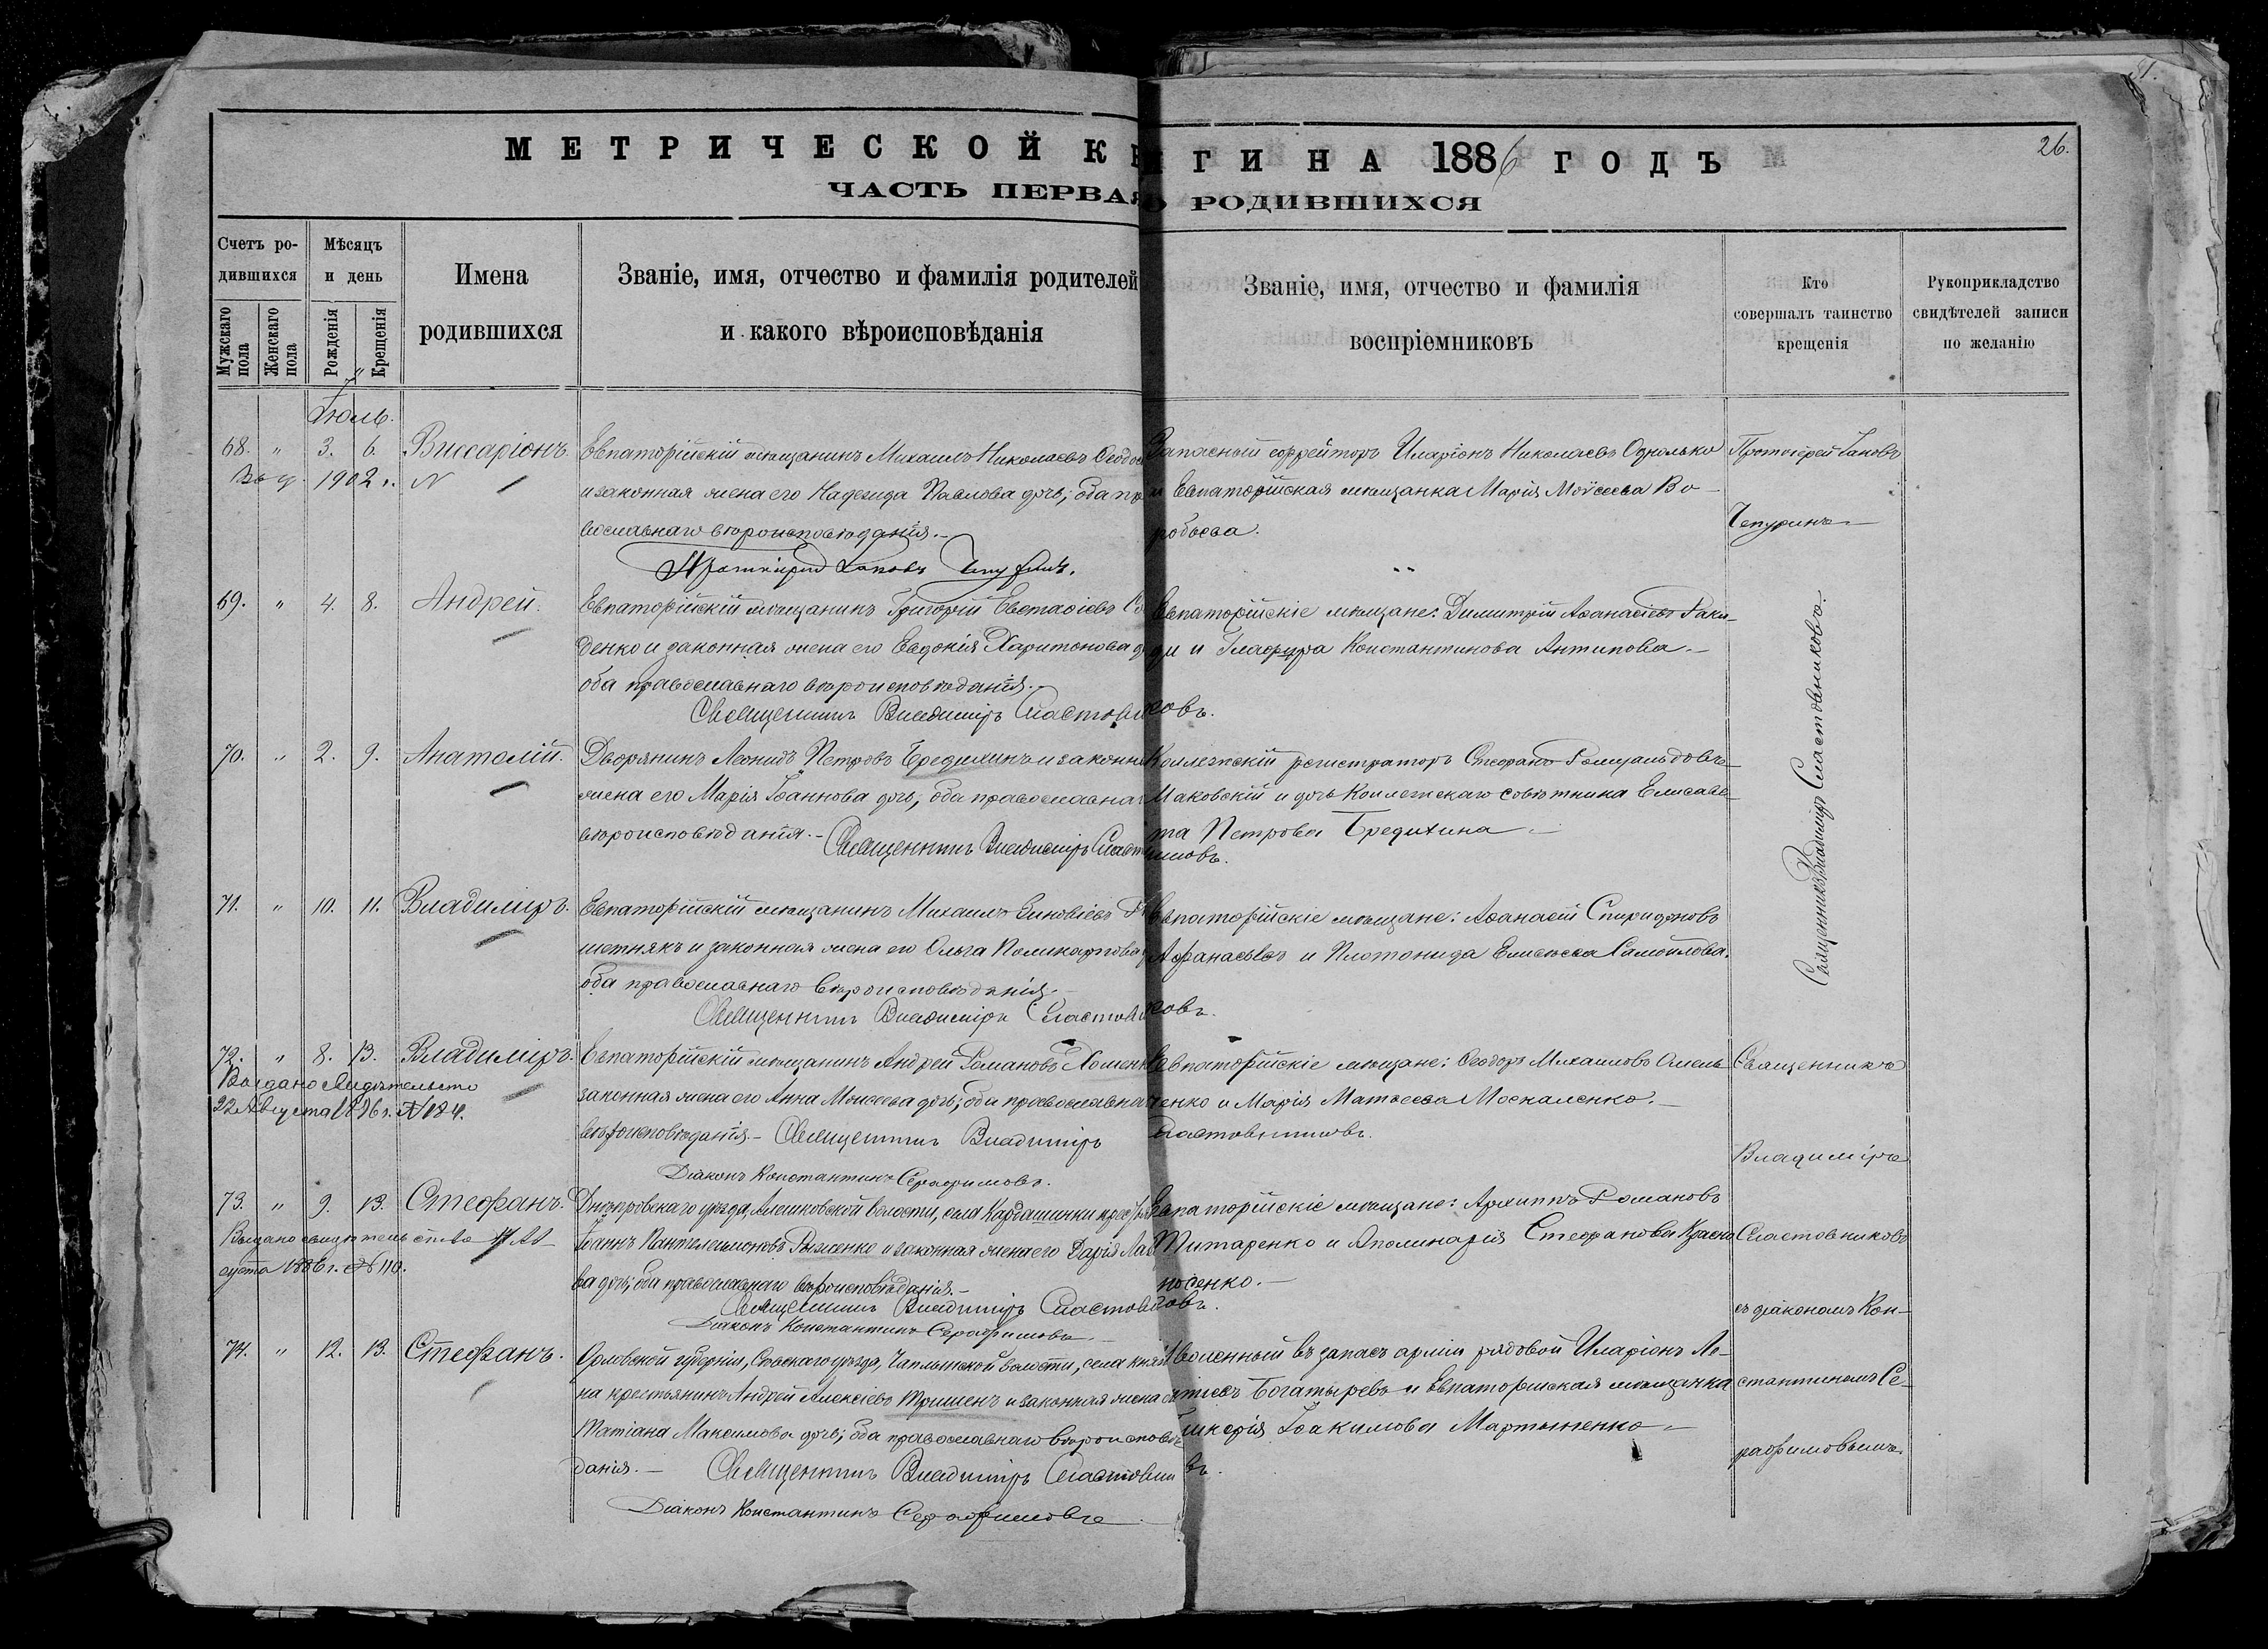 26.
МЕТРИЧЕСКОЙ К ИГИ НА 1886 ГОДЪ
ЧАСТЬ ПЕРВАЯ О РОДИВШИХСЯ
Счетъ родившихся
Мужскаго пола
Женскаго пола
Мѣсяцъ и день
Рожденія
Крещенія
Имена родившихся
Званіе, имя, отчество и фамилія родителей
и какого вѣроисповѣданія
Званіе, имя, отчество и фамилія
воспріемниковъ
Кто
совершалъ таинство
крещенія
Рукоприкладство
свидѣтелей записи
по желанію
Іюль.
68. " 3. 6. Виссаріонъ.
Выд. 1902 г. N
Евпаторійскій мѣщанинъ Михаилъ Николаевъ
и законная жена его Надежда Павлова дочь; оба пра
вославнаго вѣроисповѣданія.-
Протоіерей Іаковъ Чепуринъ.
Запасный ефрейторъ Иларіонъ Николаевъ Однолько
и Евпаторійская мѣщанка Марія Моѵсеева Во-
робьева.
Протоіерей Іаковъ
Чепуринъ
69. " 4. 8. Андрей.
Евпаторійскій мѣщанинъ Григорій Евстафіевъ
денко и законная жена его Евдокія Харитонова
оба православнаго вѣроисповѣданія.-
Священникъ Владиміръ Сластовниковъ.
Евпаторійскіе мѣщане: Димитрій Аѳанасіевъ
и Глафира Константинова Антипова.-
Священникъ Владиміръ Сластовниковъ.
70. " 2. 9. Анатолій.
Дворянинъ Леонидъ Петровъ Бредихинъ и законн
жена его Марія Іоаннова дочь; оба православнаг
вѣроисповѣданія.- Священникъ Владиміръ Сластовниковъ.
Коллежскій регистраторъ Стефанъ Ромуальдовъ
Маковскій и дочь Коллежскаго совѣтника Елисаве-
та Петрова Бредихина
71. " 10. 11. Владиміръ.
Евпаторійскій мѣщанинъ Михаилъ Зиновіевъ
шетнякъ и законная жена его Ольга Поликарпова
оба православнаго вѣроисповѣданія.-
Священникъ Владиміръ Сластовниковъ.
Евпаторійскіе мѣщане: Аѳанасій Спиридоновъ
Афанасьевъ и Платонида Елисеева Самойлова.
72. " 8. 13. Владиміръ.
Выдано Свидѣтельство
22 Августа 1896 г. N 184.
Евпаторійскій мѣщанинъ Андрей Романовъ Хоменк
законная жена его Анна Моисеева дочь; оба православна
вѣроисповѣданія.- Священникъ Владиміръ Сластовниковъ.
Діаконъ Константинъ Серафимовъ.
Евпаторійскіе мѣщане: Ѳеодоръ Михаиловъ Омель
ченко и Марія Матѳеева Москаленко.-
Священникъ
Владиміръ
73. " 9. 13. Стефанъ.
Выдано свидѣтельство 17 Ав
густа 1886 г. № 110.
Днѣпровскаго уѣзда, Алешковской волости, села Кардашинки крест
Іоаннъ Пантелеимоновъ Рыженко и законная жена его Дарія
ва дочь; оба православнаго вѣроисповѣданія.-
Священникъ Владиміръ Сластовниковъ.
Діаконъ Константинъ Серафимовъ.
Евпаторійскіе мѣщане: Архиппъ Романовъ
Питаренко и Аполинарія Стефанова Красно
носенко.-
Сластовниковъ
съ діакономъ Кон-
74. " 12. 13. Стефанъ.
Орловской губерніи, Сѣвскаго уѣзда, Чаплинской волости, села
на крестьянинъ Андрей Алексѣевъ Тришенъ и законная жена
Татіана Максимова дочь; оба православнаго вѣроисповѣ
данія.- Священникъ Владиміръ Сластовниковъ.
Діаконъ Константинъ Серафимовъ
Уволенный въ запасъ арміи рядовой Иларіонъ Ле-
онтіевъ Богатыревъ и Евпаторійская мѣщанка
Гликерія Іоакимова Мартыненко
стантиномъ Се-
рафимовымъ.